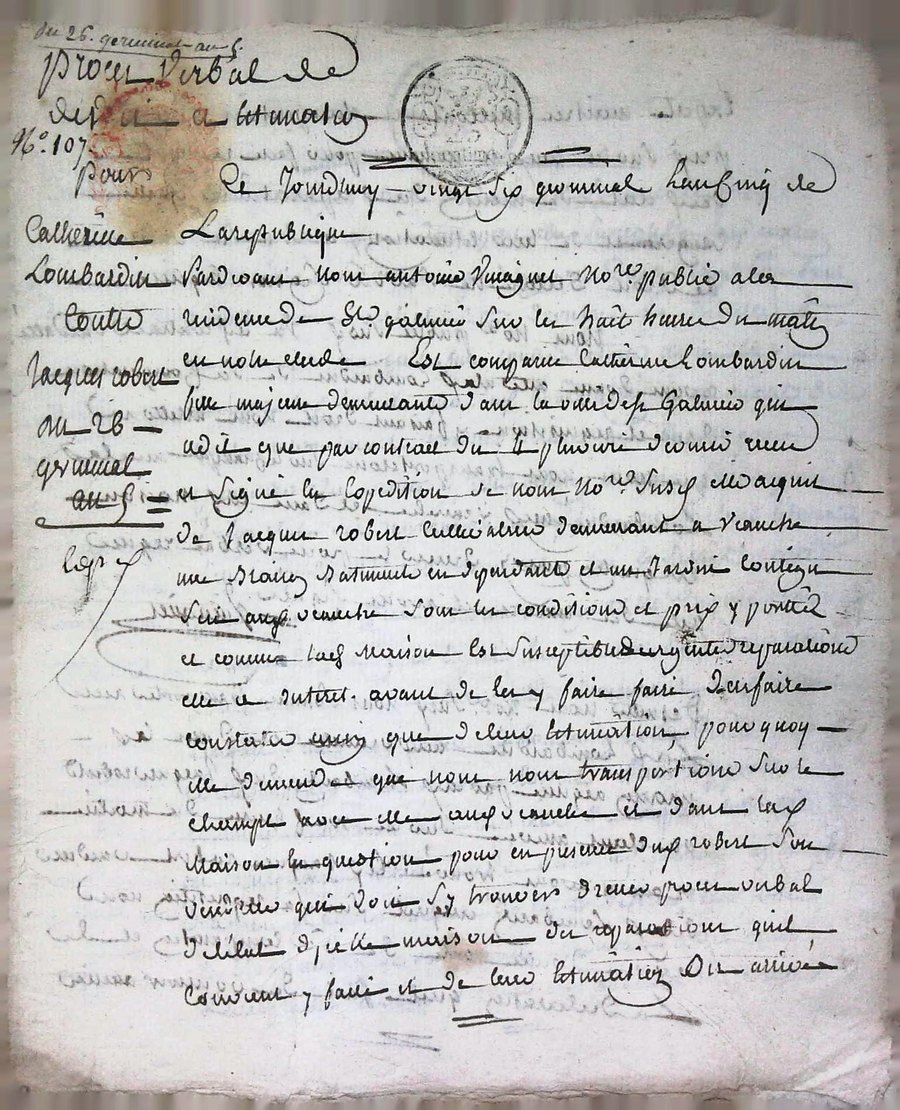 du 26. germinal an 5.
procès verbal de
devis et Estimation
N.º 107
pour
Catherine
Lombardin
Contre
Jacques robert
du 26
germinal
an 5
Cejourdhuy vingt six germinal L'an Cinq de
La republique
Pardevant nous antoine no.re public a la
residence de St. galmier Sur les huit heures du matin
en notre etude Est comparue Catherine Lombardin
fille majeure demeurante dans la ville de St Galmier qui
a dit que par contrat du 4 pluviose dernier recu
et Signé En Expedition de nous No.re Susd elle acquit
de Jacques robert demeurant a veauche
une Maison Batiment en dependant et un Jardin Contigu
Scis aud veauche Sous les conditions et prix y portés
et comme lad Maison Est Susceptible durgentes reparations
elle a interet avant de les y faire faire d'en faire
constater que de leur Estimation, pourquoy
elle demande que nous nous transportions Sur le
champt avec elle aud veauche et dans lad
Maison En question pour en presence dud robert Son
vendeur qui doit S'y trouver dresser procès verbal
de l'etat d'icelle maison des reparations quil
Convient y faire et de leur Estimation Ou arrivés